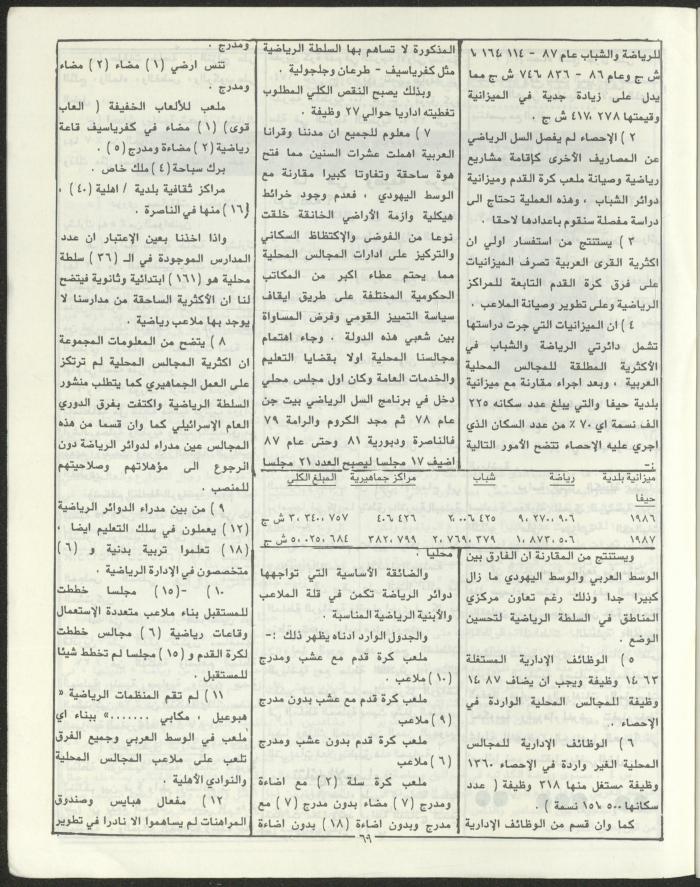 للرياضة والشباب عام ٨٧ - ١١٤ ,١٦٤ ,١
ش ج وعام ٨٦ - ٨٣٦ ,٧٤٦ ش ج مما
يدل على زيادة جدية في الميزانية
وقيمتها ٢٧٨ ,٤١٧ ش ج .
٢ ) الإحصاء لم يفصل السل الرياضي
عن المصاريف الأخرى كإقامة مشاريع
رياضية وصيانة ملعب كرة القدم وميزانية
دوائر الشباب ، وهذه العملية تحتاج الى
دراسة مفصلة سنقوم باعدادها لاحقا .
٣ ) يستنتج من استفسار اولي ان
اكثرية القرى العربية تصرف الميزانيات
على فرق كرة القدم التابعة للمراكز
الرياضية وعلى تطوير وصيانة الملاعب .
٤ ) ان الميزانيات التي جرت دراستها
تشمل دائرتي الرياضة والشباب في
الأكثرية المطلقة للمجالس المحلية
العربية ، وبعد اجراء مقارنة مع ميزانية
بلدية حيفا والتي يبلغ عدد سكانه ٢٢٥
الف نسمة اي ٧٠ ٪ من عدد السكان الذي
اجري عليه الإحصاء تتضح الأمور التالية
:-
المذكورة لا تساهم بها السلطة الرياضية
مثل كفرياسيف - طرعان وجلجولية .
وبذلك يصبح النقص الكلي المطلوب
تغطيته اداريا حوالي ٢٧ وظيفة .
٧ ) معلوم للجميع ان مدننا وقرانا
العربية اهملت عشرات السنين مما فتح
هوة ساحقة وتفاوتا كبيرا مقارنة مع
الوسط اليهودي ، فعدم وجود خرائط
هيكلية وازمة الأراضي الخانقة خلقت
نوعا من الفوضى والإكتظاظ السكاني
والتركيز على ادارات المجالس المحلية
مما يحتم عطاء اكبر من المكاتب
الحكومية المختلفة على طريق ايقاف
سياسة التمييز القومي وفرض المساواة
بين شعبي هذه الدولة . وجاء اهتمام
مجالسنا المحلية اولا بقضايا التعليم
والخدمات العامة وكان اول مجلس محلي
دخل في برنامج السل الرياضي بيت جن
عام ٧٨ ثم مجد الكروم والرامة ٧٩
فالناصرة ودبورية ٨١ وحتى عام ٨٧
اضيف ١٧ مجلسا ليصبح العدد ٢١ مجلسا
ميزانية بلدية رياضة شباب مراكز جماهيرية المبلغ الكلي
حيفا
١٩٨٦ ٩,٢٧٠,٩٠٦ ٢,٠٠٦,٤٢٥ ٤٠٦,٤٢٦ ٣٠,٣٤٠,٧٥٧ ش ج
١٩٨٧ ١٠,٨٧٣,٥٠٦ ٢,٧٦٩,٣٧٩ ٣٨٢,٧٩٩ ٥٠,٠٢٥,٦٨٤ ش ج
ويستنتج من المقارنة ان الفارق بين
الوسط العربي والوسط اليهودي ما زال
كبيرا جدا وذلك رغم تعاون مركزي
المناطق في السلطة الرياضية لتحسين
الوضع .
٥ ) الوظائف الإدارية المستغلة
٦٣ ,١٤ وظيفة ويجب ان يضاف ٨٧ ,١٤
وظيفة للمجالس المحلية الواردة في
الإحصاء .
٦ ) الوظائف الإدارية للمجالس
المحلية الغير واردة في الإحصاء ١٣,٦٠
وظيفة مستغل منها ٣,١٨ وظيفة ( عدد
سكانها ١٥٦,٥٠٠ نسمة )
كما وان قسم من الوظائف الإدارية
محليا .
والضائقة الأساسية التي تواجهها
دوائر الرياضة تكمن في قلة الملاعب
والأبنية الرياضية المناسبة .
والجدول الوارد ادناه يظهر ذلك :-
ملعب كرة قدم مع عشب ومدرج
( ١٠ ) ملاعب .
ملعب كرة قدم مع عشب بدون مدرج
( ٩ ) ملاعب
ملعب كرة قدم بدون عشب ومدرج
( ٦ ) ملاعب
ملعب كرة سلة ( ٢ ) مع اضاءة
ومدرج ( ٧ ) مضاء بدون مدرج ( ٧ ) مع
مدرج وبدون اضاءة ( ١٨ ) بدون اضاءة
ومدرج .
تنس ارضي ( ١ ) مضاء ( ٢ ) مضاء
ومدرج .
ملعب للألعاب الخفيفة ( العاب
قوى ) ( ١ ) مضاء في كفرياسيف قاعة
رياضية ( ٢ ) مضاءة ومدرج ( ٥ ) .
برك سباحة ( ٤ ) ملك خاص .
مراكز ثقافية بلدية / اهلية ( ٤٠ ) ،
( ١٦ ) منها في الناصرة .
واذا اخذنا بعين الإعتبار ان عدد
المدارس الموجودة في الـ ( ٣٦ ) سلطة
محلية هو ( ١٦١ ) ابتدائية وثانوية فيتضح
لنا ان الأكثرية الساحقة من مدارسنا لا
يوجد بها ملاعب رياضية .
٨ ) يتضح من المعلومات المجموعة
ان اكثرية المجالس المحلية لم ترتكز
على العمل الجماهيري كما يتطلب منشور
السلطة الرياضية واكتفت بفرق الدوري
العام الإسرائيلي كما وان قسما من هذه
المجالس عين مدراء لدوائر الرياضة دون
الرجوع الى مؤهلاتهم وصلاحيتهم
للمنصب .
٩ ) من بين مدراء الدوائر الرياضية
( ١٢ ) يعملون في سلك التعليم ايضا ،
( ١٨ ) تعلموا تربية بدنية و ( ٦ )
متخصصون في الإدارة الرياضية .
١٠ ) - ( ١٥ ) مجلسا خططت
للمستقبل بناء ملاعب متعددة الإستعمال
وقاعات رياضية ( ٦ ) مجالس خططت
لكرة القدم و ( ١٥ ) مجلسا لم تخطط شيئا
للمستقبل .
١١ ) لم تقم المنظمات الرياضية «
هبوعيل ، مكابي .......» ببناء اي
ملعب في الوسط العربي وجميع الفرق
تلعب على ملاعب المجالس المحلية
والنوادي الأهلية .
١٢ ) مفعال هبايس وصندوق
المراهنات لم يساهموا الا نادرا في تطوير
٦٩